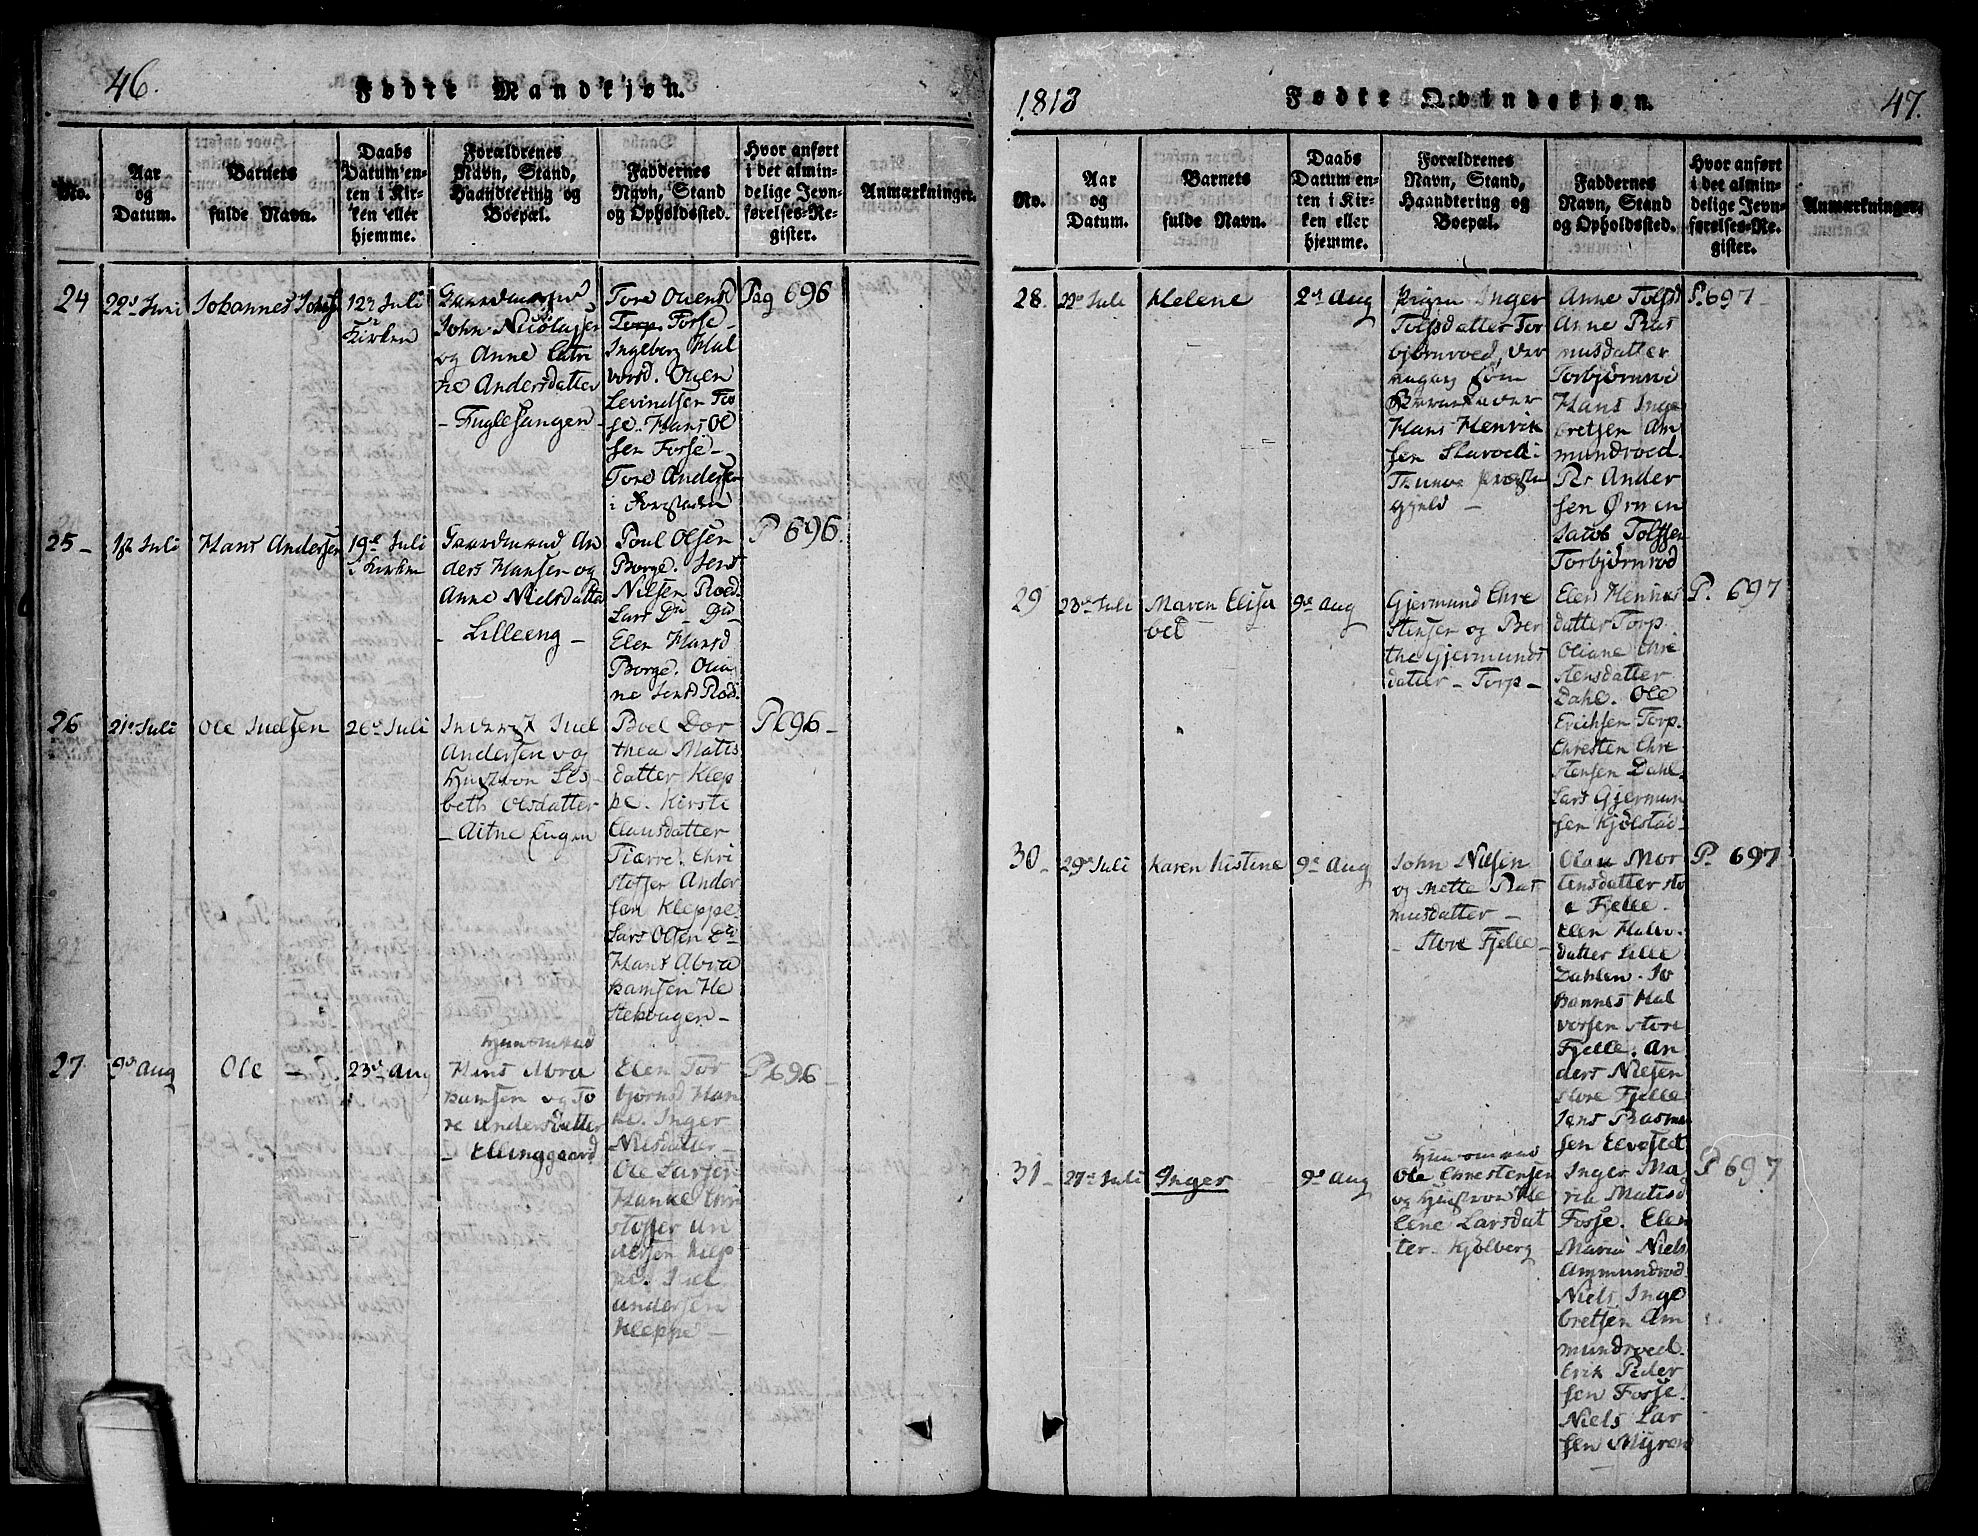 46.
Fødte Mandkjøn.
No.
Aar
og
Datum.
Barnets
fulde Navn.
Daabs
Datum en-
ten i Kir-
ken eller
hjemme.
Forældrenes
Navn, Stand,
Haandtering og
Boepæl.
Faddernes
Navn, Stand
og Opholdssted.
Hvor anført
i det almin-
delige Jevn-
førelses-Re-
gister.
Anmærkninger.
24
22d Juni
Johannes Johns
12d Juli
i Kirken
Gaardmand
John Nicolajsen
og Anne Catri
ne Andersdatter
- Fuglesangen -
Tore Ouensd
Torp. Forse -
Ingeborg Hal
vorsd. Ouen
Levindsen For
se. Hans Ol
sen Forse -
Tore Andersen
i
Pag 696
25 -
1st Juli
Hans Andersen
19d Juli
i Kirken
Gaardmand An
ders Hansen og
Anne Nielsdatter
- Lilleeng -
Poul Olsen
Borge. Jens
Nilsen Roed
Lars Do Do
Elen Hansd
Borge. Olia
ne Jensd Rød.
P 696.
26
21d Juli
Ole Juelsen
26d Juli
Inderst Juel
Andersen og
Hustron Lis-
beth Olsdatter
- Aitne Engen
Boel Dor
thea Matis
datter Klep
pe. Kirste
Clausdatter
Tiærre. Chri
stoffer Ander
sen Kleppe.
Lars Olsen Do
Hans Abra
hamsen He
stehougen -
P 696 -
27
9d Aug
Ole -
23d Aug
Huusmand
Hans Abra
hamsen og To
re Andersdatter
- Ellinggaard
Elen Tor
bjørnsd Han
ke. Inger
Nilsdatter
Ole Larsen
Hanke Chri
stoffer An
dersen Klep
pe. Juel
Andersen
Kleppe -
P 696 -
1813
Fødte Qvindekjøn.
47.
No.
Aar
og
Datum.
Barnets
fulde Navn.
Daabs
Datum en-
ten i Kir-
ken eller
hjemme.
Forældrenes
Navn, Stand,
Haandtering og
Boepæl.
Faddernes
Navn, Stand
og Opholdssted.
Hvor anført
i det almin-
delige Jevn-
førelses-Re-
gister.
Anmærkninger.
28.
22d Juli
Helene
2d Aug
Pigen Inger
Tolfsdatter Tor
bjørnroed, der
som
Barnefader
Hans Henrik
sen Skaroed i
Thunøe Præste
gjeld -
Anne Tolfsd
Anne Ras
musdatter
Torbjørnrød
Hans Inge
bretsen Am
mundroed.
Per Ander
sen Ørmen
Jacob Tolfsen
Torbjørnrød
P. 697 -
29
23d Juli
Maren Elisa
bet
9d Aug
Gjermund Chre
stensen og Ber
the Gjermunds
datter - Torp -
Elen Hennes
datter Torp.
Oliane Chri
stensdatter
Dahl. Ole
Erichsen Torp.
Chresten Chre
stensen Dahl.
Lars Gjermun
sen Kjølstad -
P. 697
30 -
29d Juli
Karen Kistine
9d Aug
John Nilsen
og Mette Ras
musdatter -
- Store Fjelle -
Olau Mor
tensdatter sto
e Fjelle.
Elen Halvo
datter Lille
Dahlen. Jo
hannes Hal
vorsen store
Fjelle. An
ders Nilsen
store Fjelle
Jens Rasmu
sen Elvested
P. 697
31 -
27d Juli
Inger
9d Aug
Huusmand
Ole Chrestensen
og Hustron He
lene Larsdat
ter. Kjølberg
Inger Ma
rie Matisd
Forse. Elen
Maria Niels
Ammundrød.
Niels Inge
bretsen Am
mundroed.
Erik Peder
sen Forse.
Niels Lar
sen Myren
P 697